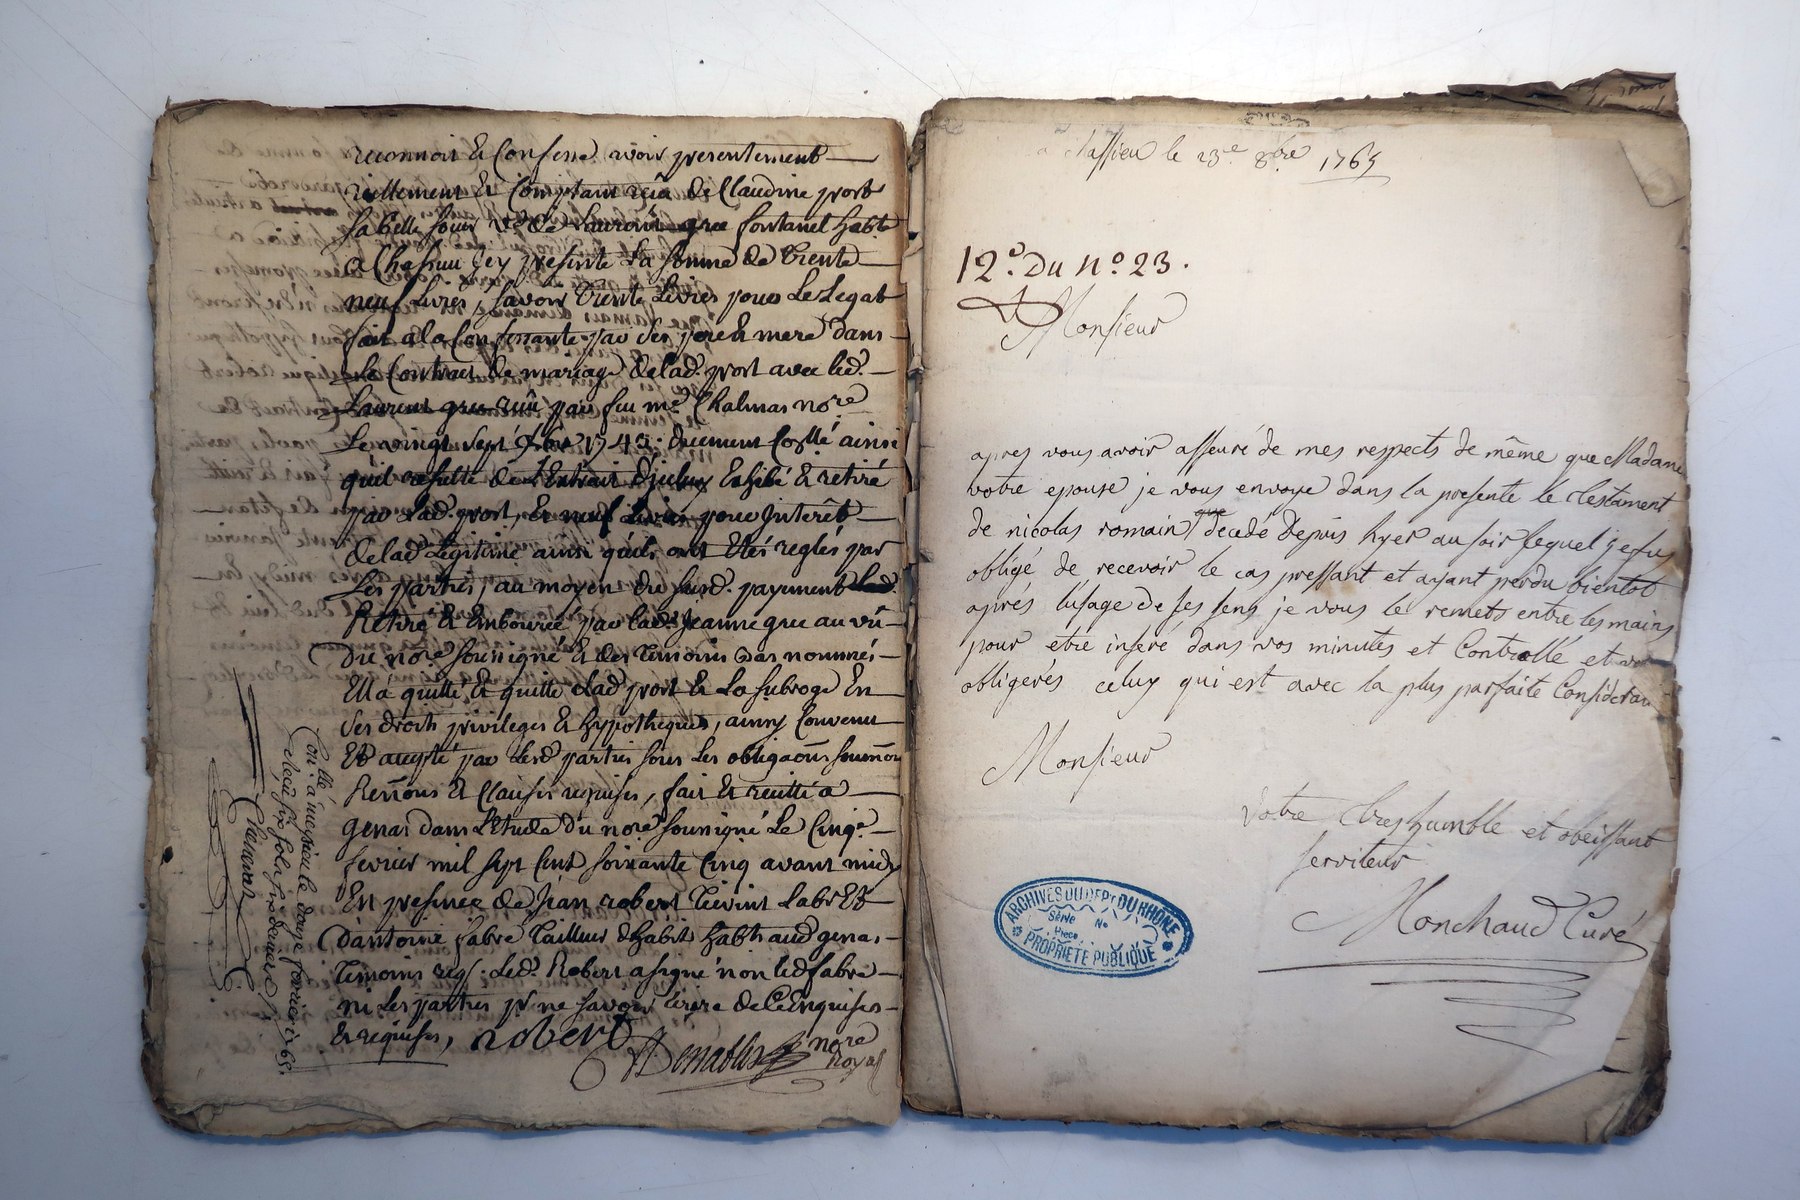 reconnoit & Confesse avoir presentement
reellement & Comptant reçu de Claudine port
sa belle soeur ve de Laurent gree fontanel habt
a Chassieu jcy presente La somme de trente
neuf Livres, savoir trente Livres pour Le Legat
fait a la Confessante par ses pere & mere dans
Le Contract de mariage de lad. port avec led.
Laurent gree reçû par feu me Chalmas nore
Le vingt sept 1745. duement Collé ainsi
quil resulte de L'Extrait Exhibé & retiré
par Lad. port, & neuf Livres pour Jnterêt
de lad Legitime ainsi quils ont Etés reglés par
Les parties, au moyen du susd. payement
Retiré & Emboursé par lad. Jeanne gree au vû
Du nore soussigné & des temoins bas nommés
Ell'á quitté & quitte lad port & La subroge En
ses droits privileges & hypotheques, ainsy Convenu
Et accepté par Lesd parties sous Les obligaons
Renons & Clauses requises, fait & recitté a
genas dans L'Etude du nore soussigné Le Cinqe
fevrier mil sept Cent soixante Cinq avant midy
En presence de Jean robert
D'antoine fabre tailleur d'habits habts aud genas
temoins reqs. Led. Robert a signé non led fabre
ni Les parties pr ne savoir Ecrire de Ce Enquises
& requises, robert
nore
Royal
Conllé á meysieu le douze fevrier 1765.
a Chassieu le 23e 8bre 1765
12e. du no. 23.
Monsieur
apres vous avoir asseuré de mes respects de même que Madame
votre epouse je vous envoye dans la presente le testament
de nicolas romain decedé Depuis hyer au soir lequel je fus
obligé de recevoir le cas pressant et ayant perdu bientot
aprés l'usage de ses sens je vous le remets entre les mains
pour etre inseré dans vos minutes et Controllé et
obligerés celuy qui est avec la plus parfaite Consideration
Monsieur
Votre tres humble et obeissant
serviteur
Monchaud Curé
ARCHIVES DU DEPT DU RHONE
Série No
Pièce
PROPRIETE PUBLIQUE